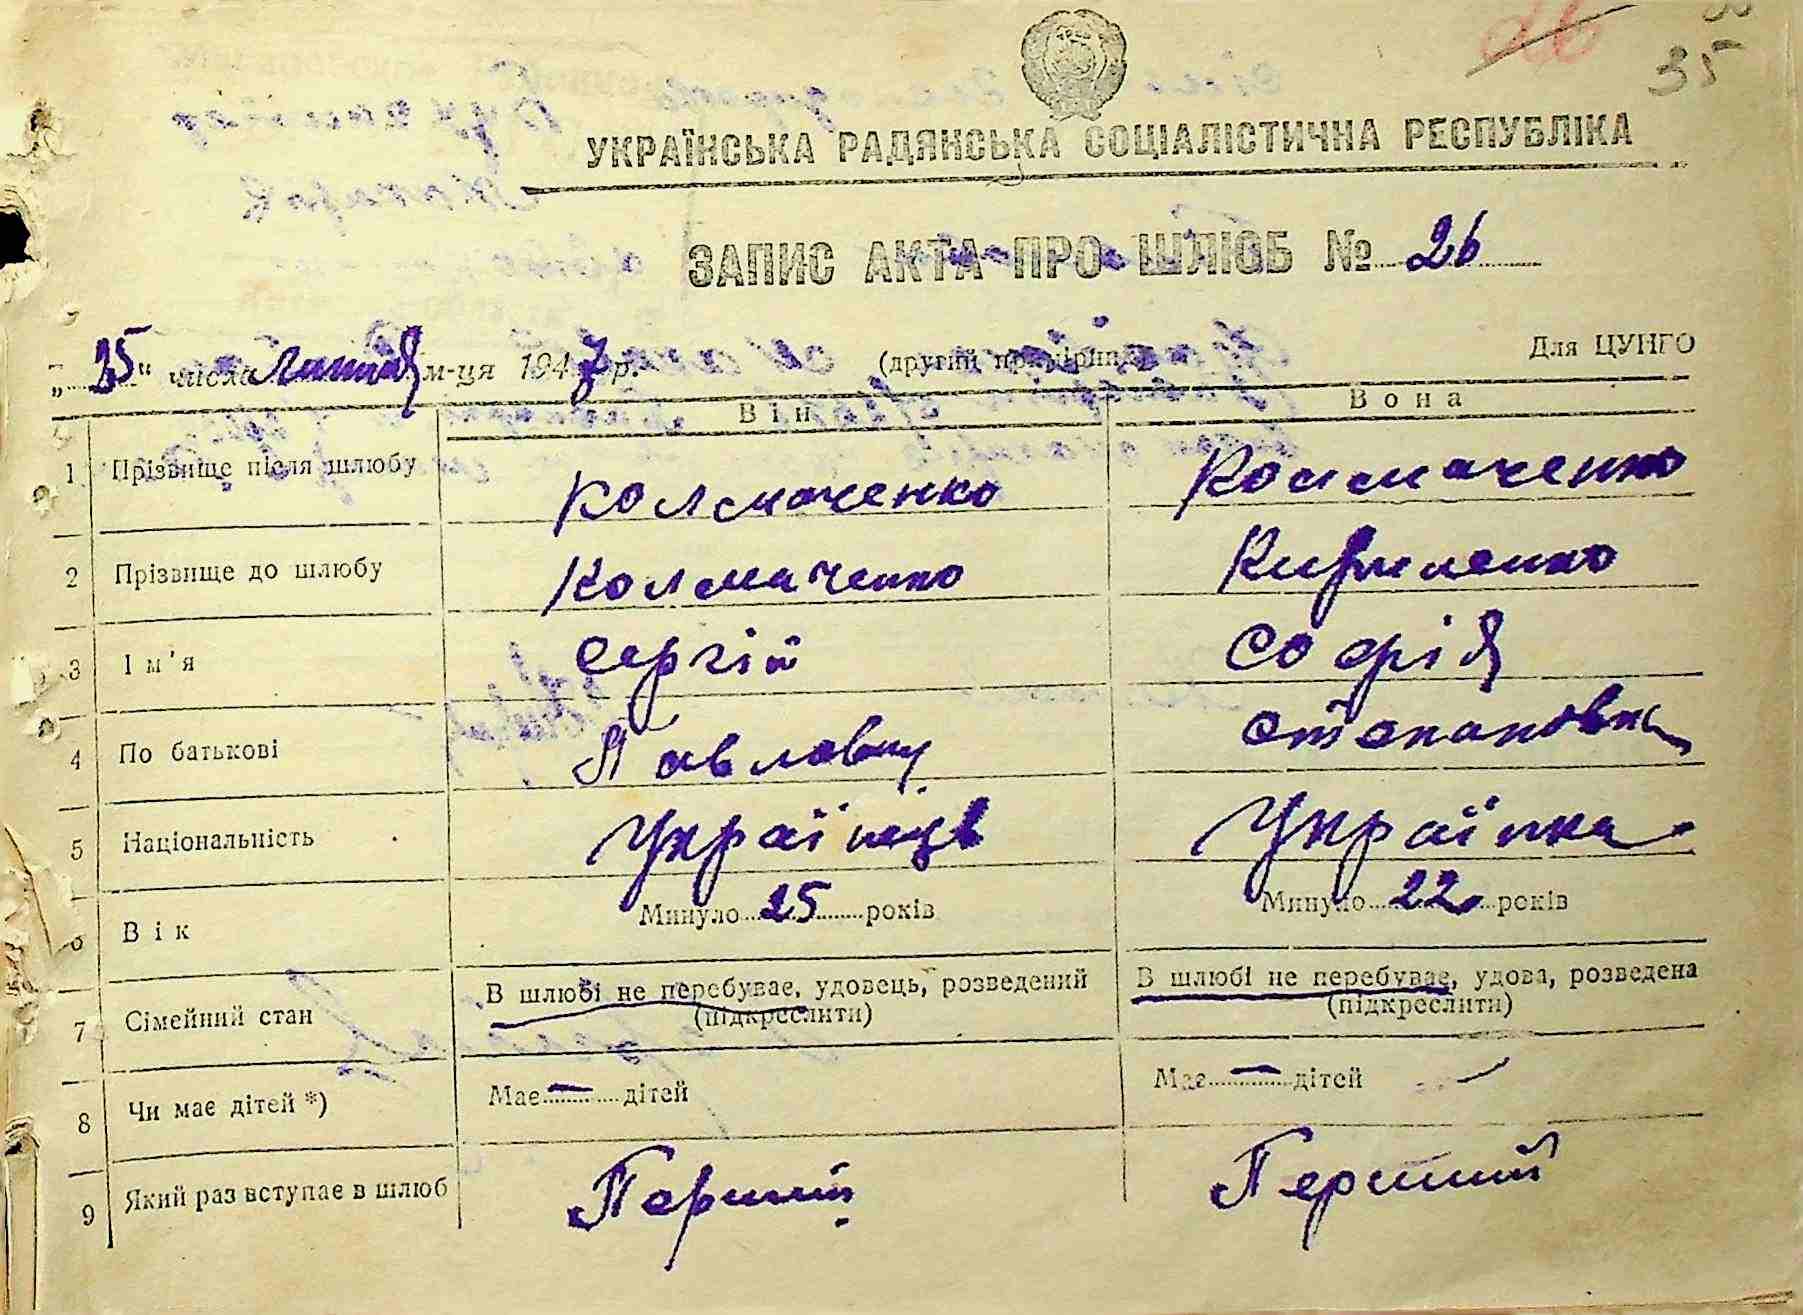 26
35
УКРАЇНСЬКА РАДЯНСЬКА СОЦІАЛІСТИЧНА РЕСПУБЛІКА
ЗАПИС АКТА ПРО ШЛЮБ № 26
„25" числа м-ця 1947 р. (другий примірник) Для ЦУНГО
Він Вона
1 Прізвище після шлюбу Колмаченко Колмаченко
2 Прізвище до шлюбу Колмаченко Кириленко
3 Ім'я Сергій Софія
4 По батькові Павлович Степановна
5 Національність Українець Українка
6 Вік Минуло 25 років Минуло 22 років
7 Сімейний стан В шлюбі не перебуває, удовець, розведений В шлюбі не перебуває, удова, розведена
(підкреслити) (підкреслити)
8 Чи має дітей *) Має — дітей Має — дітей
9 Який раз вступає в шлюб Перший Перший